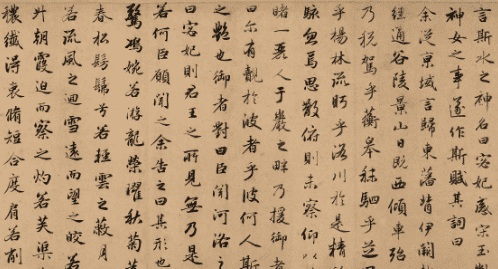 言斯水之神名曰宓妃感宋玉對
神女之事遂作斯賦其詞曰
余從京域言歸東藩背伊闕
經通谷陵景山日既西傾車殆
乃税駕乎蘅皋秣駟乎芝
乎楊林流眄乎洛川於是精
駭忽焉思散俯則未察仰以
睹一麗人于巖之畔乃援御者
曰尔有覿於彼者乎彼何人斯
之艷也御者對曰臣聞河洛之
曰宓妃則君王之所見無乃是
若何臣願聞之余告之曰其形也
驚鴻婉若游龍榮曜秋菊
春松髣髴兮若輕雲之蔽月
若流風之迴雪遠而望之皎若
升朝霞迫而察之灼若芙渠
穠纖得衷脩短合度肩若削